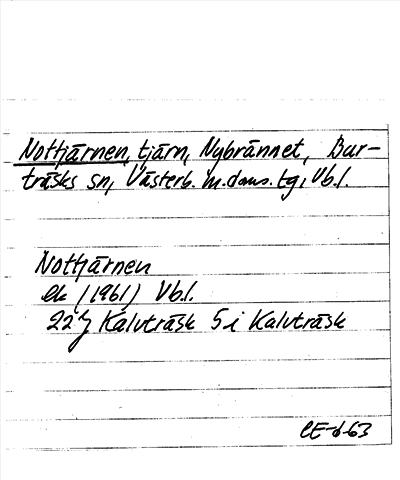 Nottjärnen, tjärn, Nybrännet, Bur-
träsks sn, Västerb. m. doms. tg, Vb.l.
Nottjärnen
ek (1961) Vb.l.
22 J Kalvträsk 5i Kalvträsk
CE-d-63